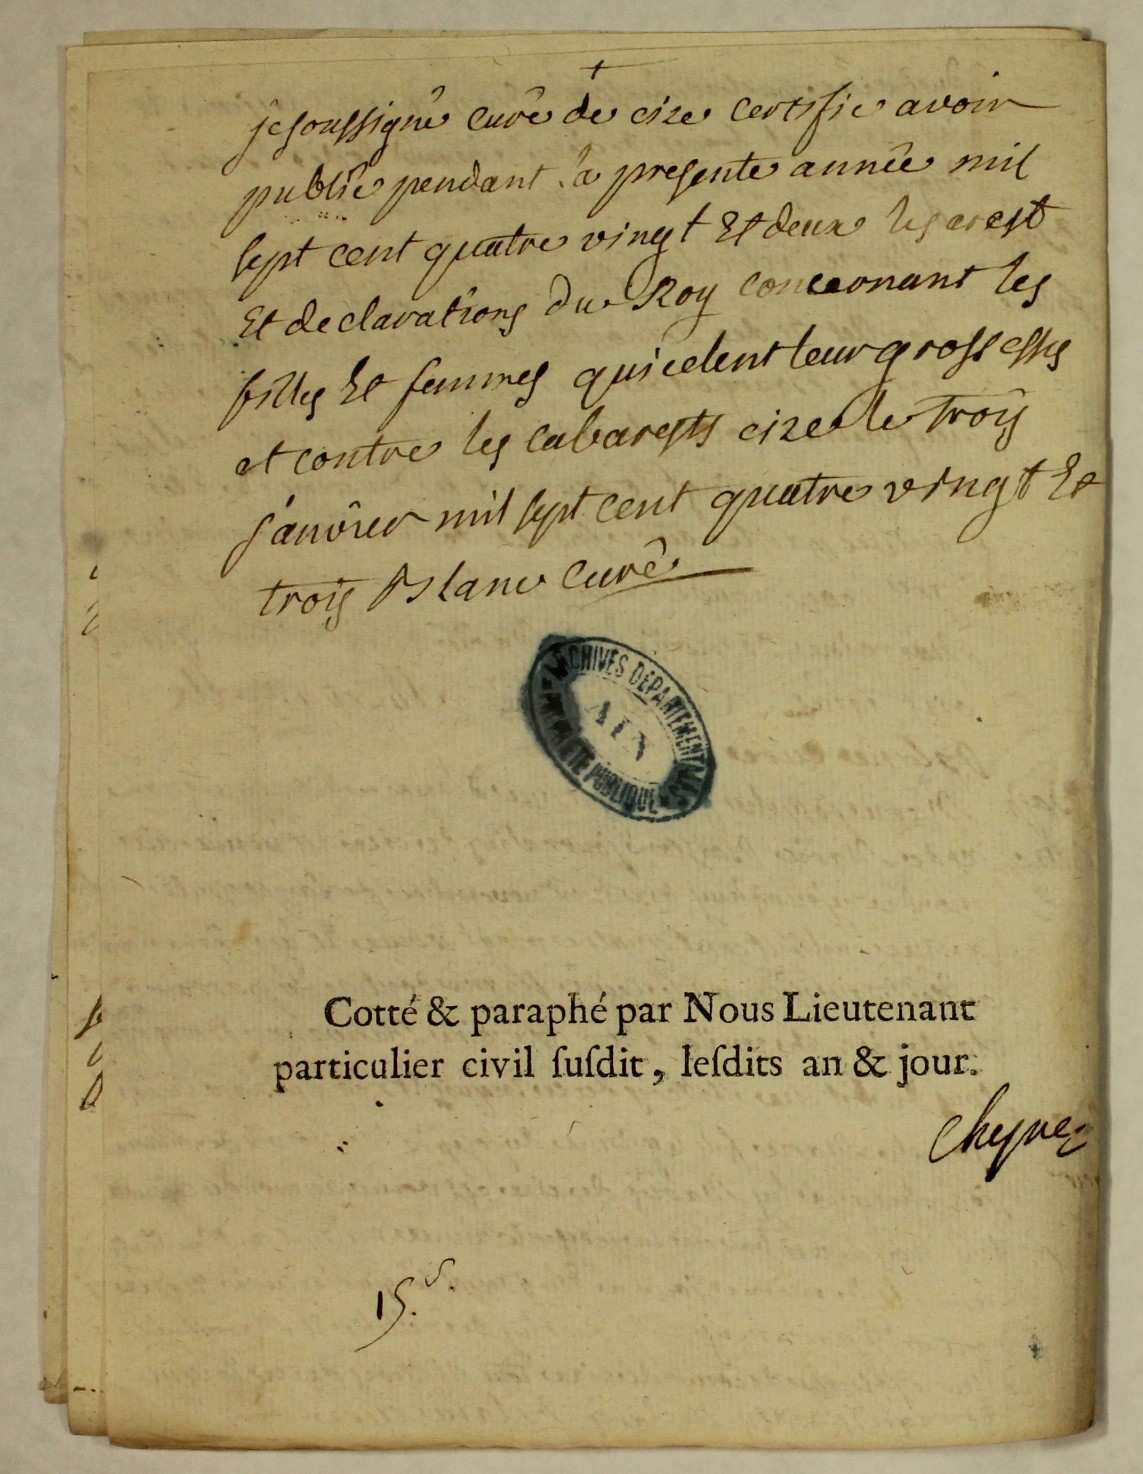 +
je soussigné curé de cize certifie avoir
publié pendant la presente année mil
sept cent quatre vingt Et deux les arest
Et declarations du Roy concernant les
filles Et femmes qui celent leur grossesses
et contre les cabarests cize le trois
janvier mil sept cent quatre vingt Et
trois Blanc curé
ARCHIVES DEPARTEMENTALES
AIN
PUBLIQUE
Cotté & paraphé par Nous Lieutenant
particulier civil ſuſdit, leſdits an & jour.
15.s.